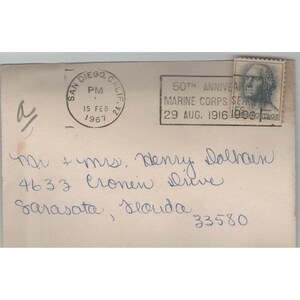 SAN DIEGO, CALIF.
PM
15 FEB
1967
50TH ANNIVER
MARINE CORPS
29 AUG. 1916
a
Mr. + Mrs. Henry Dalhain
4633 Cronin Drive
Sarasota, Florida
33580